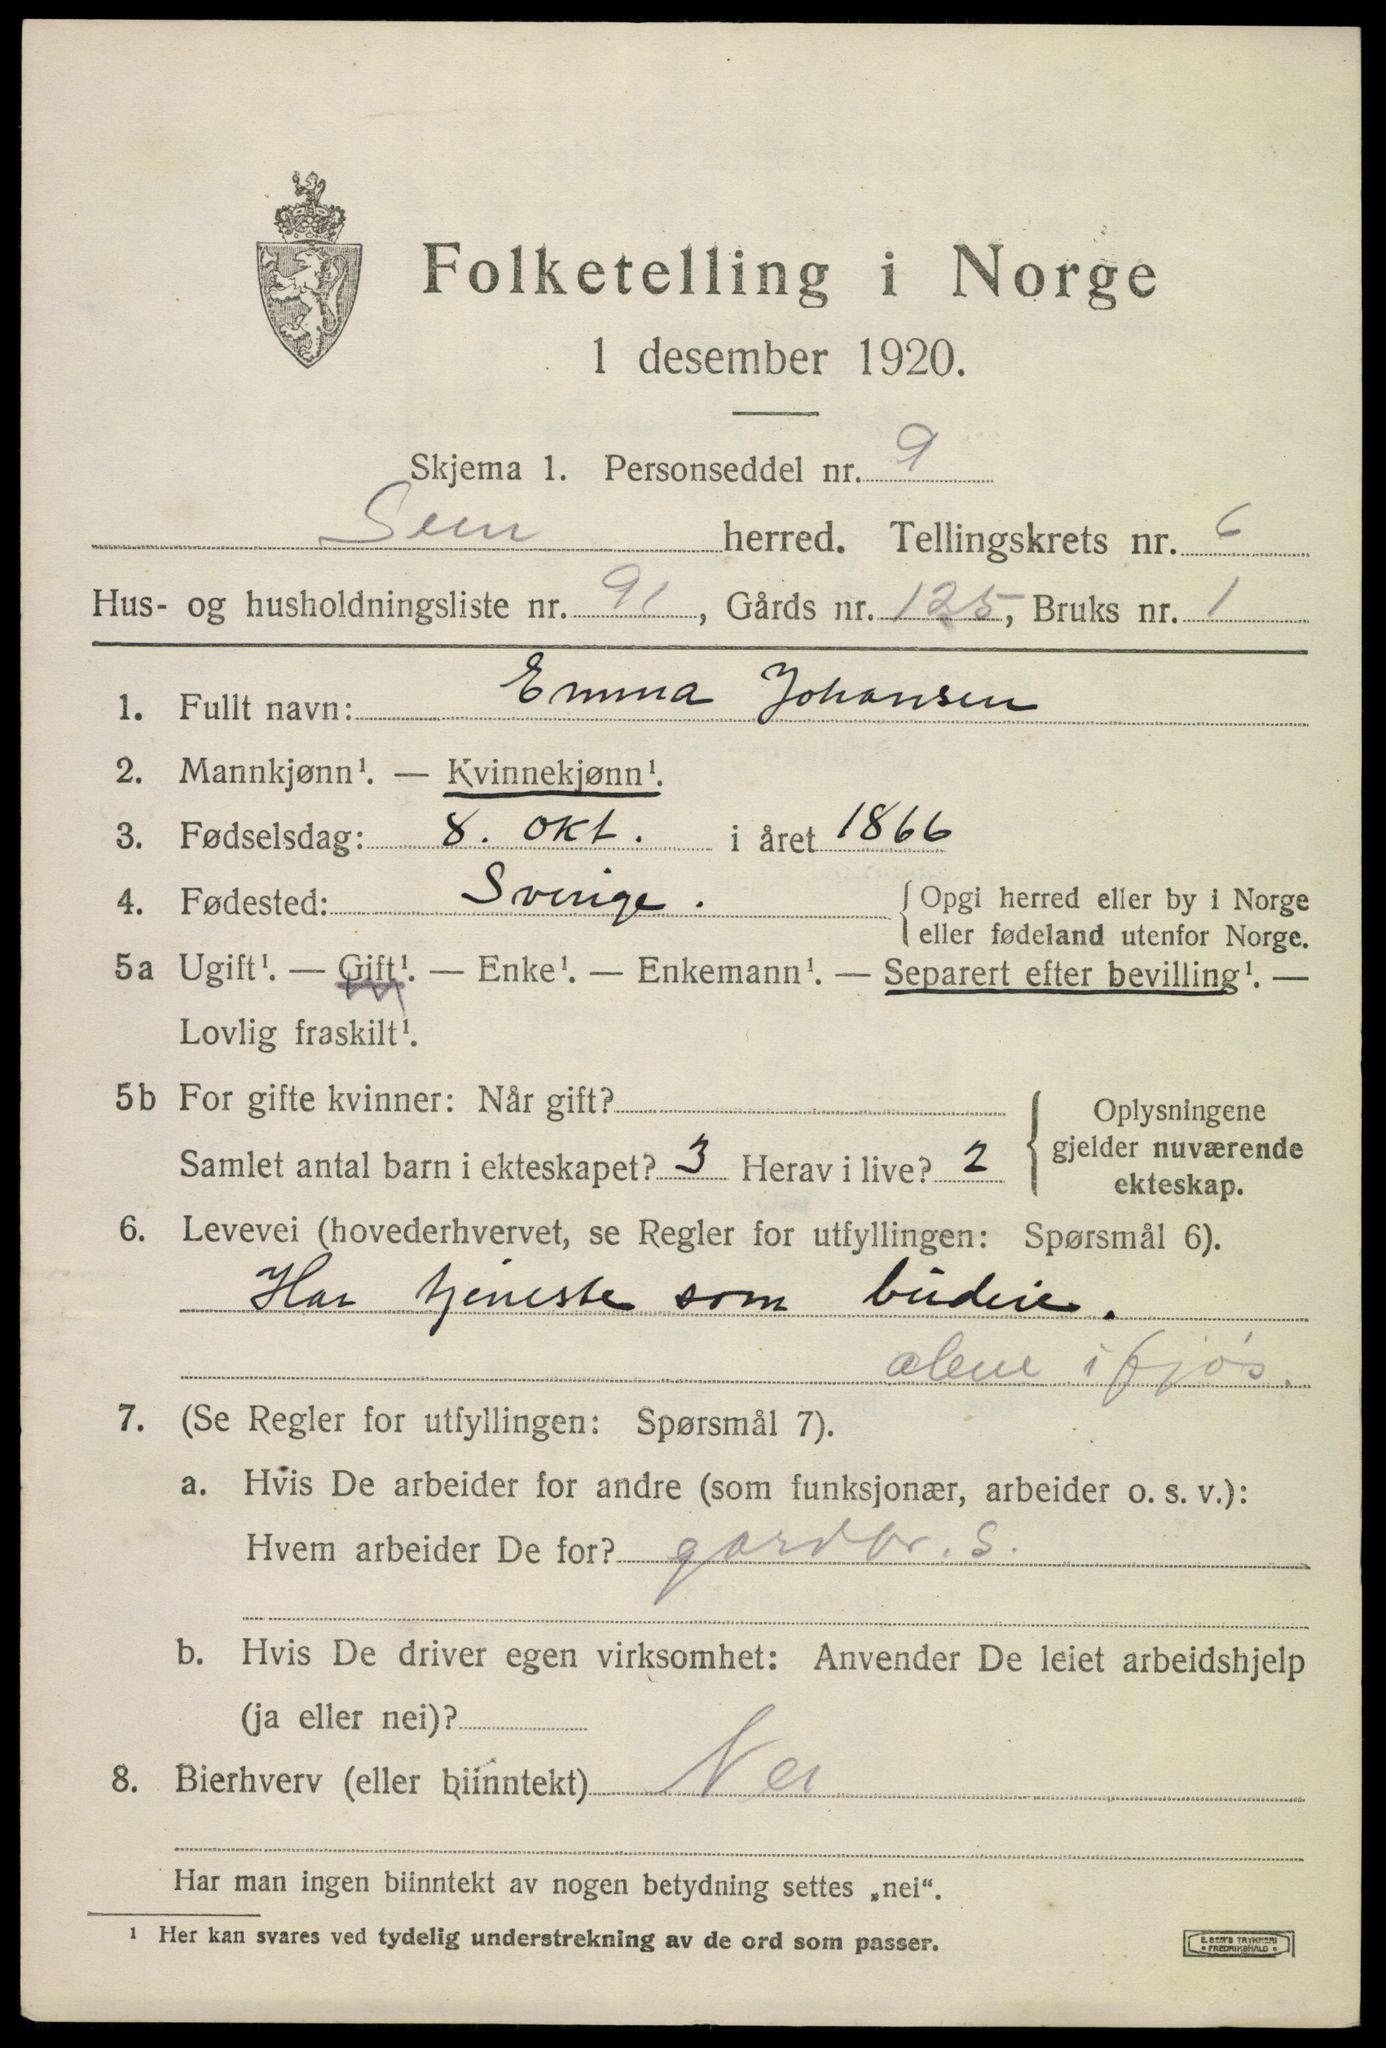 Folketelling i Norge
1 desember 1920.
Skjema 1. Personseddel nr. 9
Sem herred. Tellingskrets nr. 6
Hus- og husholdningsliste nr. 91, Gårds nr. 125, Bruks nr. 1
1. Fullt navn: Emma Johansen
2. Mannkjønn¹. — Kvinnekjønn¹.
3. Fødselsdag: 8. okt. i året 1866
4. Fødested: Sverige. { Opgi herred eller by i Norge
eller fødeland utenfor Norge.
5a Ugift¹. — Gift¹. — Enke¹. — Enkemann¹. — Separert efter bevilling¹. —
Lovlig fraskilt¹.
5b For gifte kvinner: Når gift?
Samlet antal barn i ekteskapet? 3 Herav i live? 2
Oplysningene
gjelder nuværende
ekteskap.
6. Levevei (hovederhvervet, se Regler for utfyllingen: Spørsmål 6).
Har tjeneste som budeie.
alene i fjøs.
7. (Se Regler for utfyllingen: Spørsmål 7).
a. Hvis De arbeider for andre (som funksjonær, arbeider o. s. v.):
Hvem arbeider De for? gardbr. S.
b. Hvis De driver egen virksomhet: Anvender De leiet arbeidshjelp
(ja eller nei)?
8. Bierhverv (eller biinntekt) Nei
Har man ingen biinntekt av nogen betydning settes „nei“.
¹ Her kan svares ved tydelig understrekning av de ord som passer.
E. SEMS TRYKKERI
• FREDRIKSHALD •